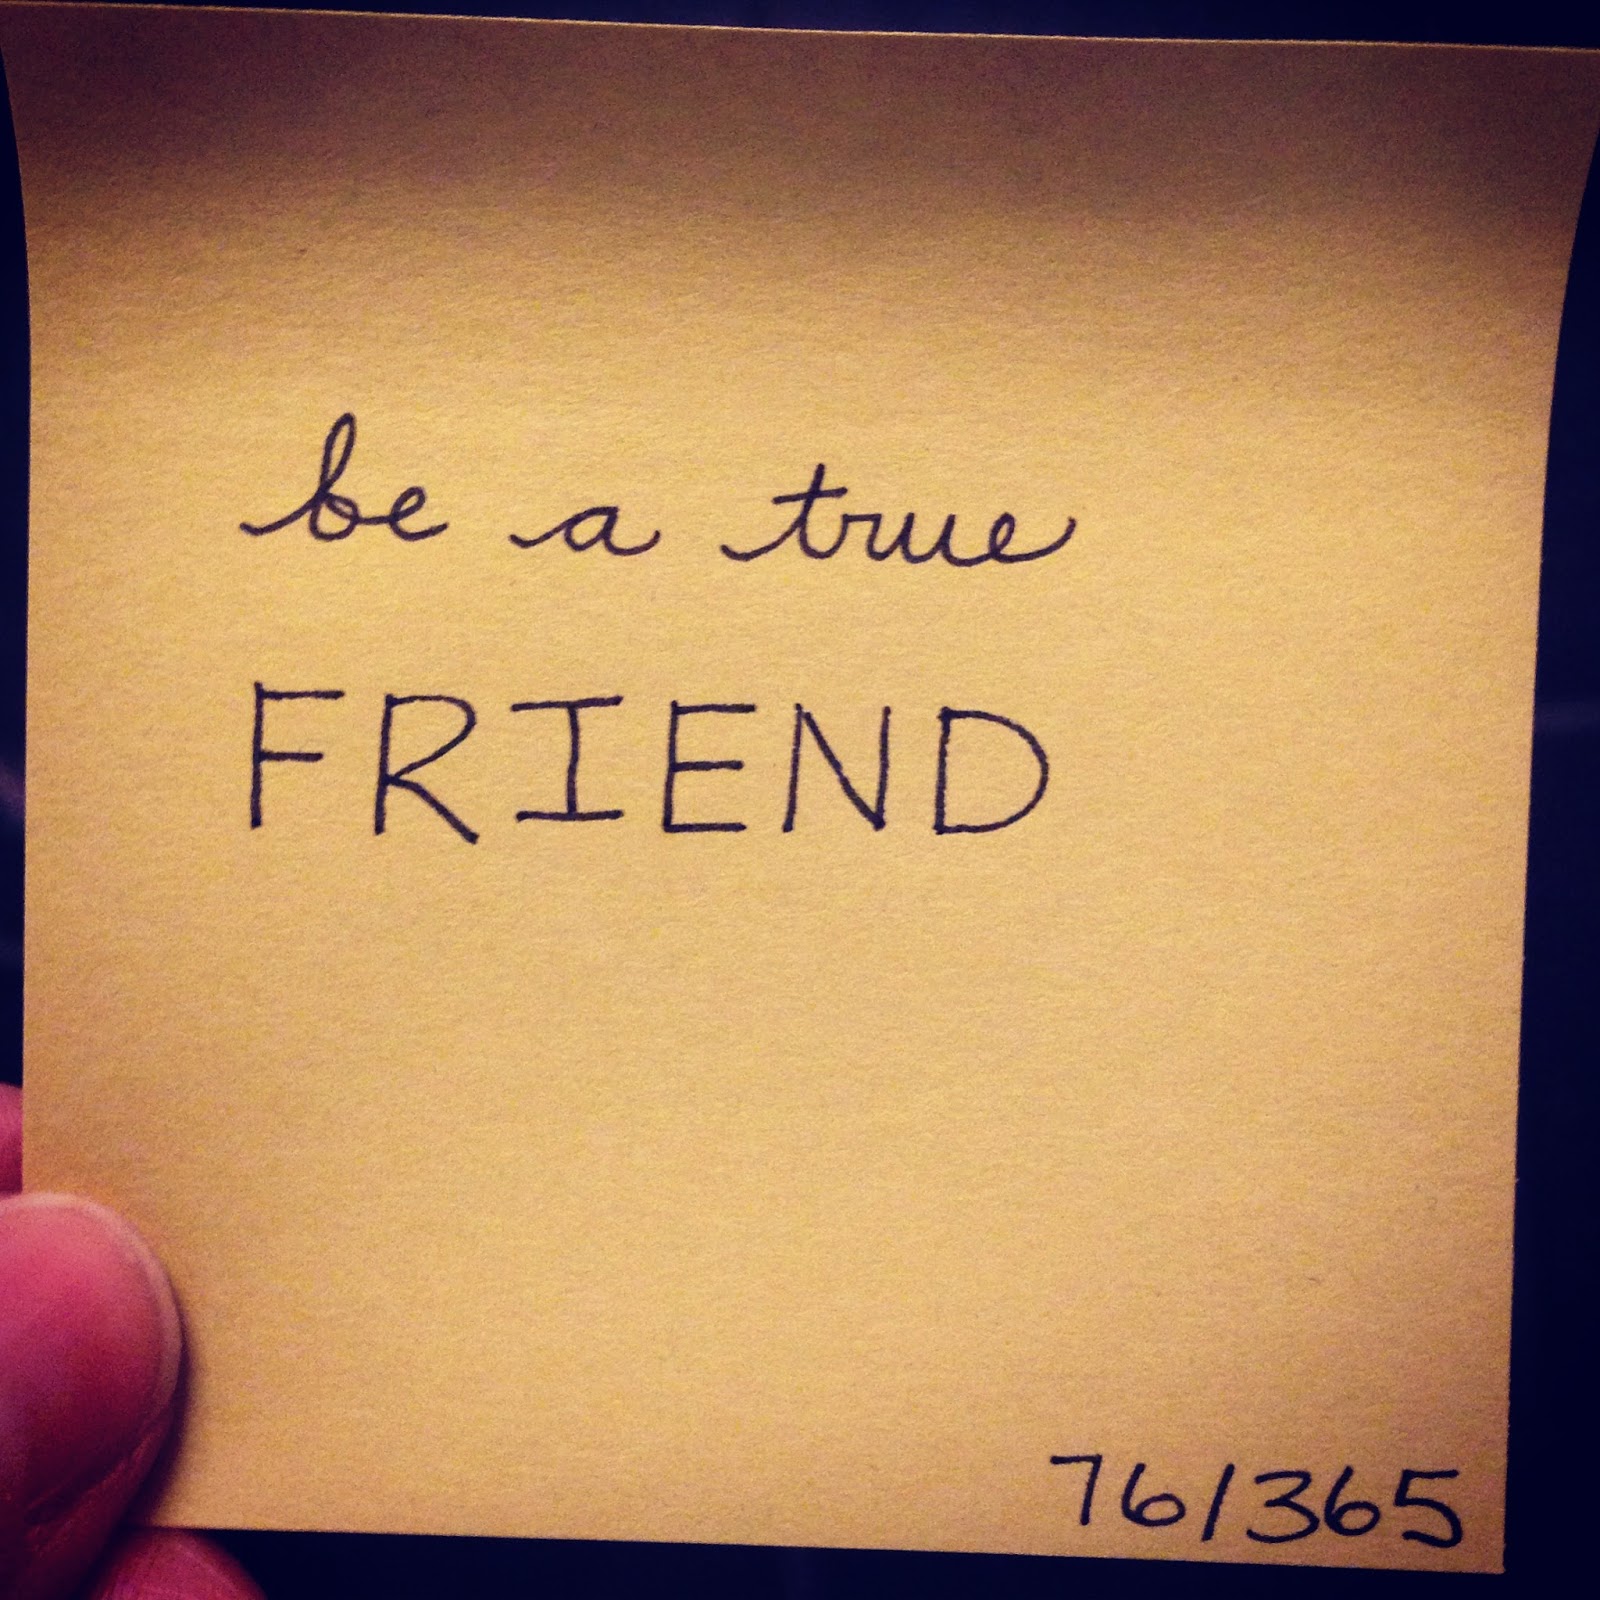 be a true
FRIEND
76/365